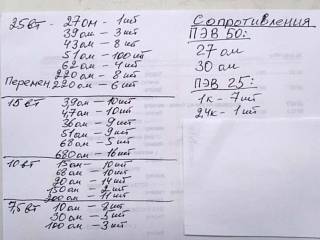 25вт - 27ом - 1шт
39ом - 3шт
43ом - 8шт
51ом - 100шт
62ом - 4шт
220ом - 8шт
Перемен. 220ом - 6шт
15вт 39ом - 10шт
4,7ом - 10шт
36ом - 9шт
51ом - 9шт
68ом - 5шт
680ом - 16шт
10вт 15ом - 10шт
68ом - 10шт
20ом - 14шт
150ом - 2шт
200ом - 11шт
7,5вт 10ом - 2шт
30ом - 5шт
100ом - 3шт
Сопротивления
ПЭВ 50:
27ом
30ом
ПЭВ 25:
1к - 7шт
2,4к - 1шт